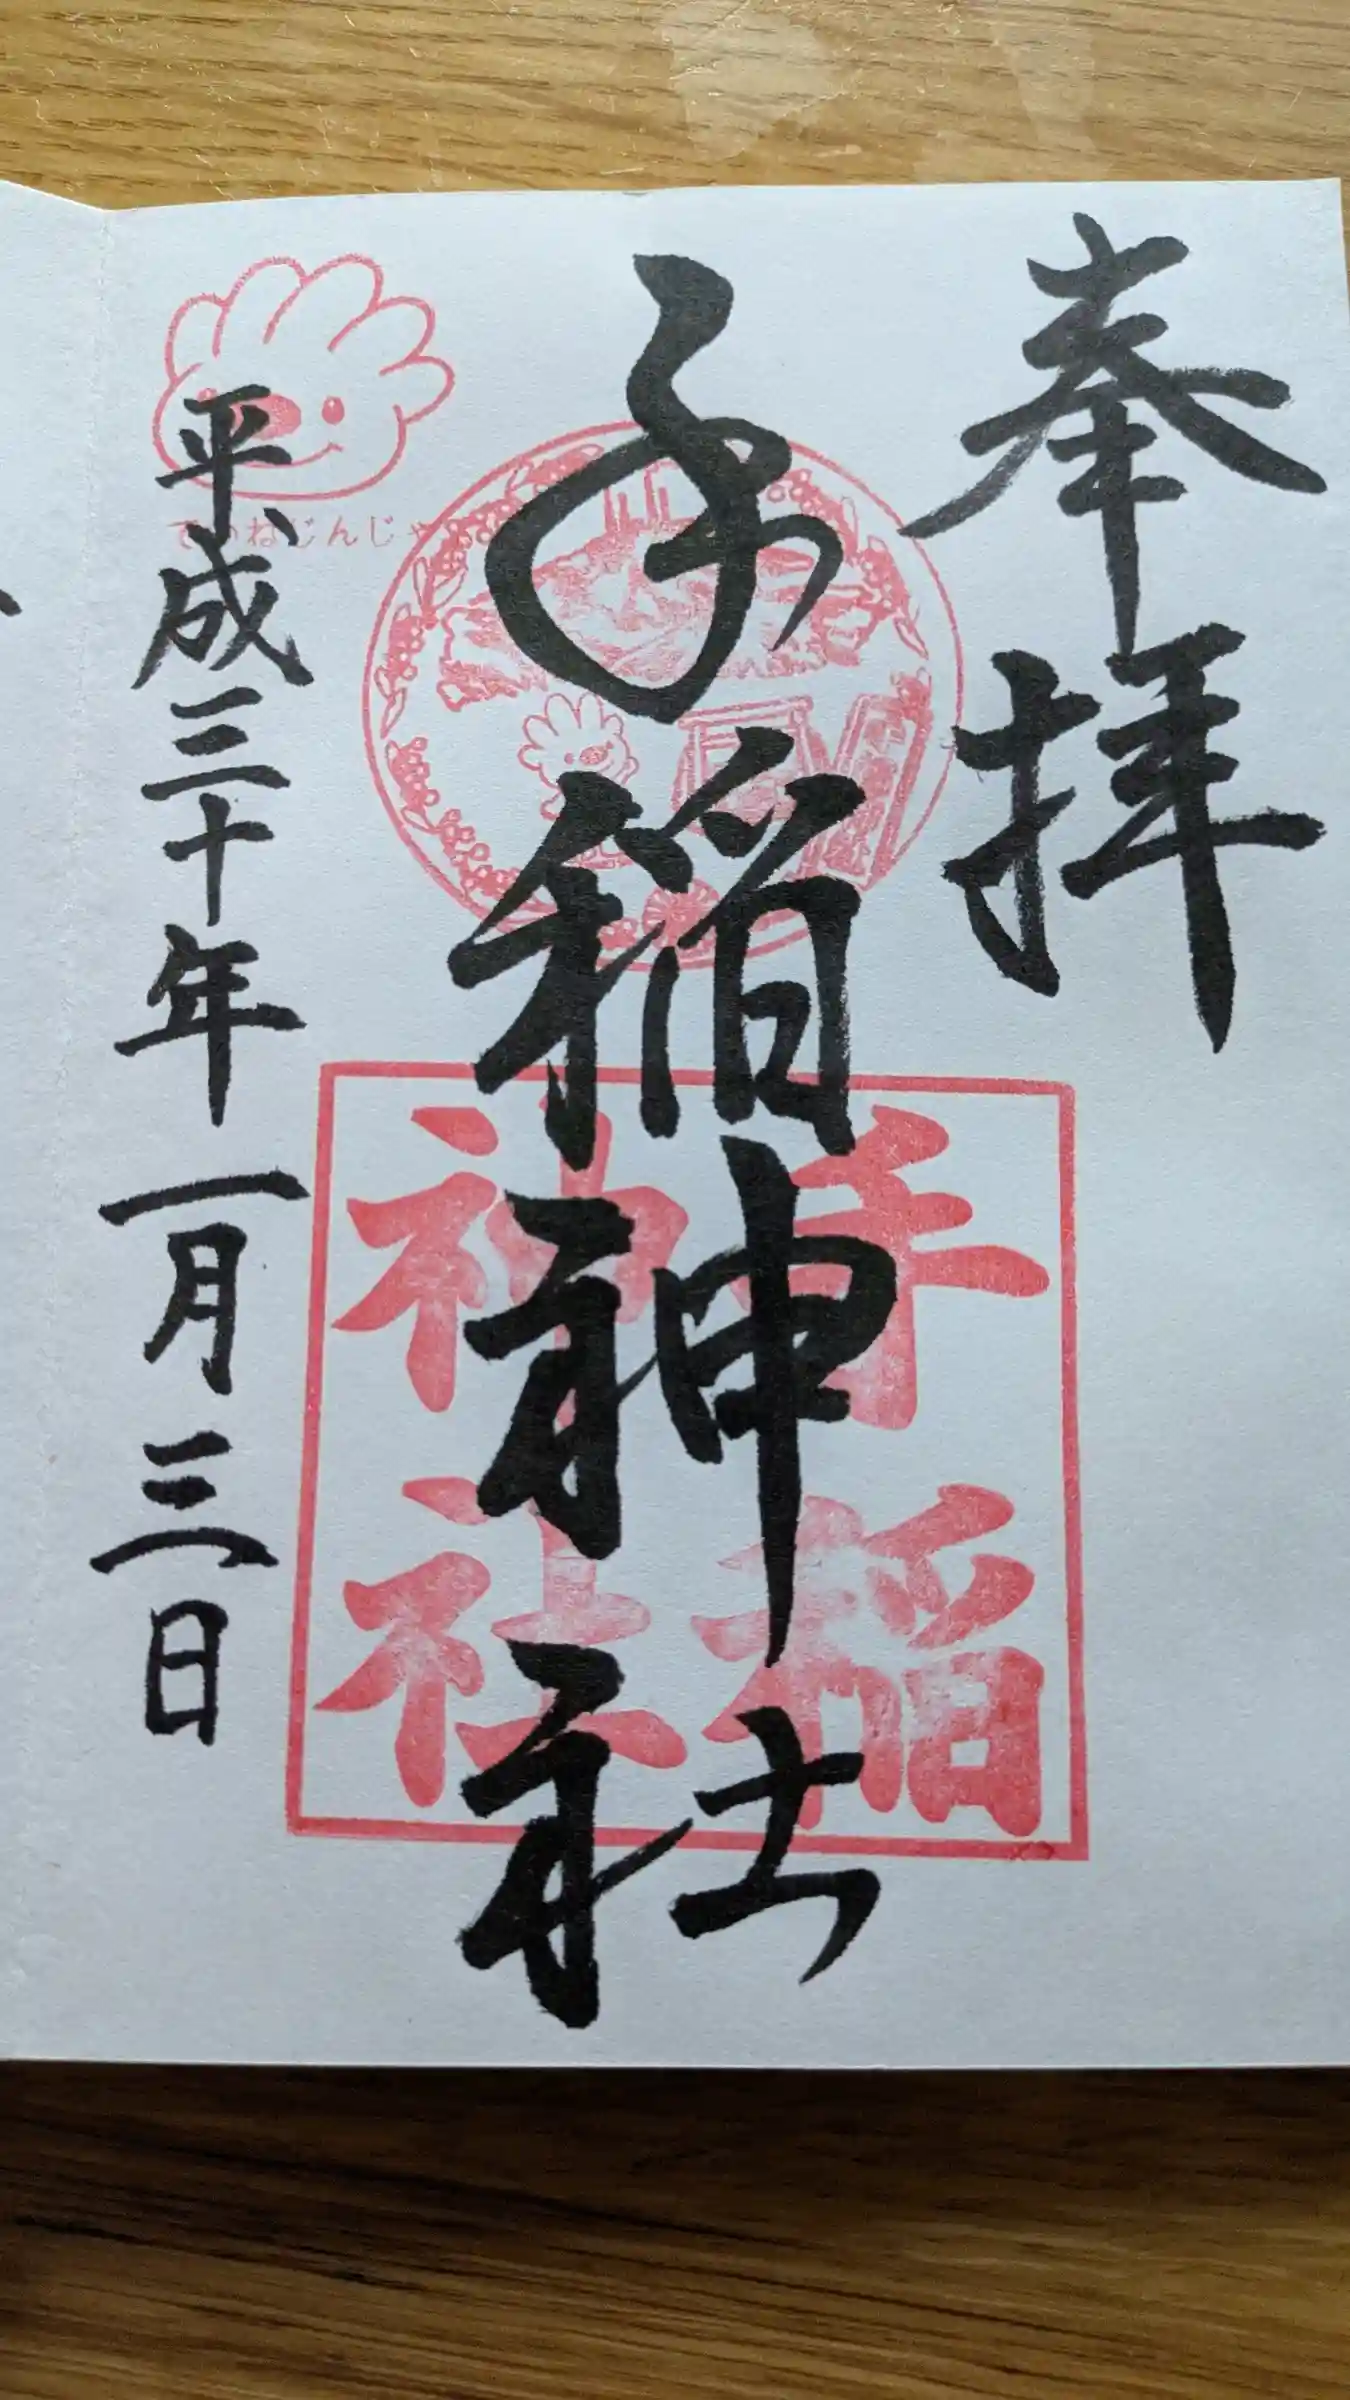 奉拝
手稲神社
平成三十年一月三日
ていねじんじゃ
手稲
神社